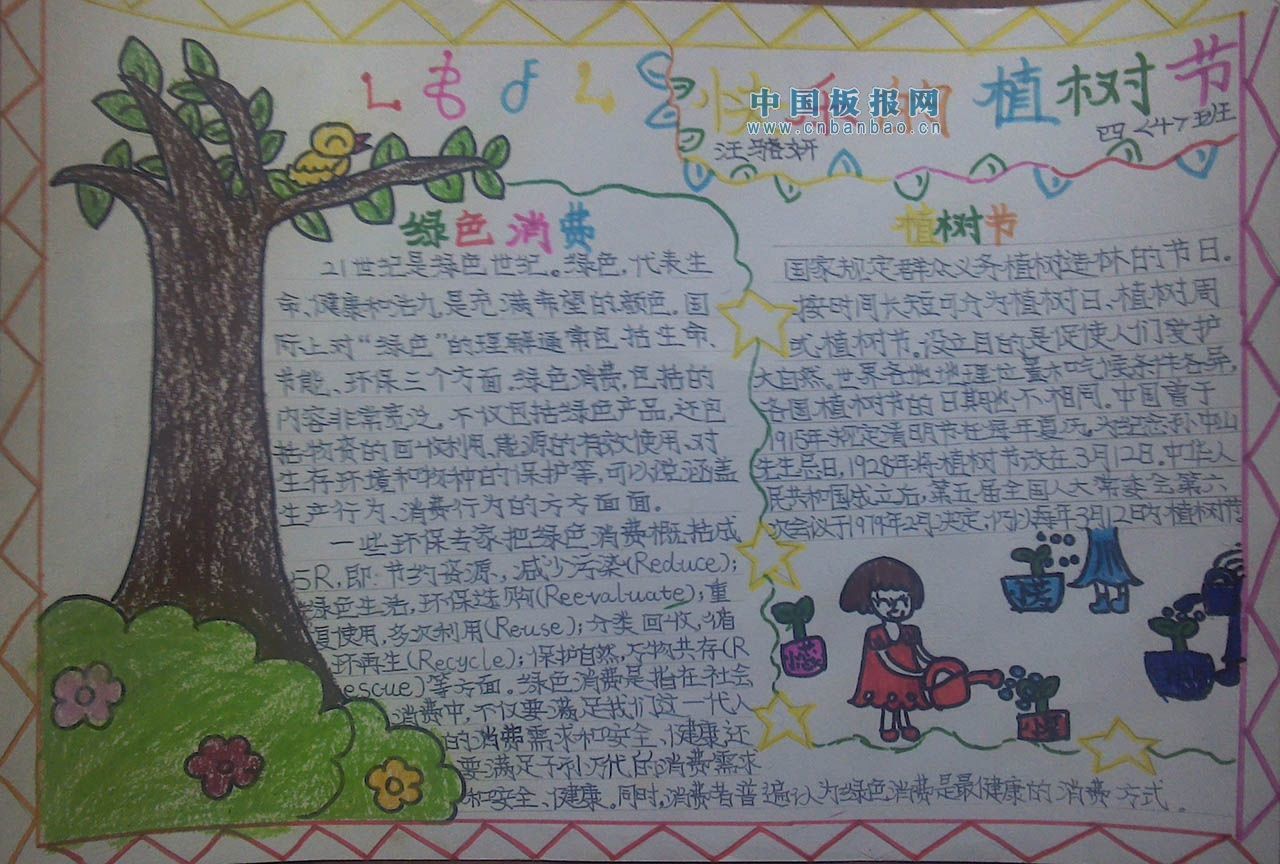 快乐的植树节
中国板报网
www.cnbanbao.cn
四<4>班
汪骆妍
绿色消费
21世纪是绿色世纪。绿色,代表生
命、健康和活力,是充满希望的颜色。国
际上对“绿色”的理解通常包括生命、
节能、环保三个方面。绿色消费,包括的
内容非常宽泛。不仅包括绿色产品,还包
括物资的回收利用,能源的有效使用、对
生存环境和物种的保护等,可以说涵盖
生产行为、消费行为的方方面面。
一些环保专家把绿色消费概括成
5R,即:节约资源,减少污染(Reduce);
绿色生活,环保选购(Reevaluate);重
复使用,多次利用(Reuse);分类回收,循
环再生(Recycle);保护自然,万物共存(R
escue)等方面。绿色消费是指在社会
消费中,不仅要满足我们这一代人
的消费需求和安全、健康,还
要满足子孙万代的消费需求
和安全、健康。同时,消费者普遍认为绿色消费是最健康的消费方式。
植树节
国家规定群众义务植树造林的节日。
按时间长短可分为植树日、植树周
或植树节。设立目的是促使人们爱护
大自然。世界各地地理位置和气候条件各异,
各国植树节的日期也不相同。中国曾于
1915年规定清明节在每年夏历。为纪念孙中山
先生忌日,1928年将植树节改在3月12日。中华人
民共和国成立后,第五届全国人大常委会第六
次会议于1979年2月决定,仍以每年3月12日为植树节。